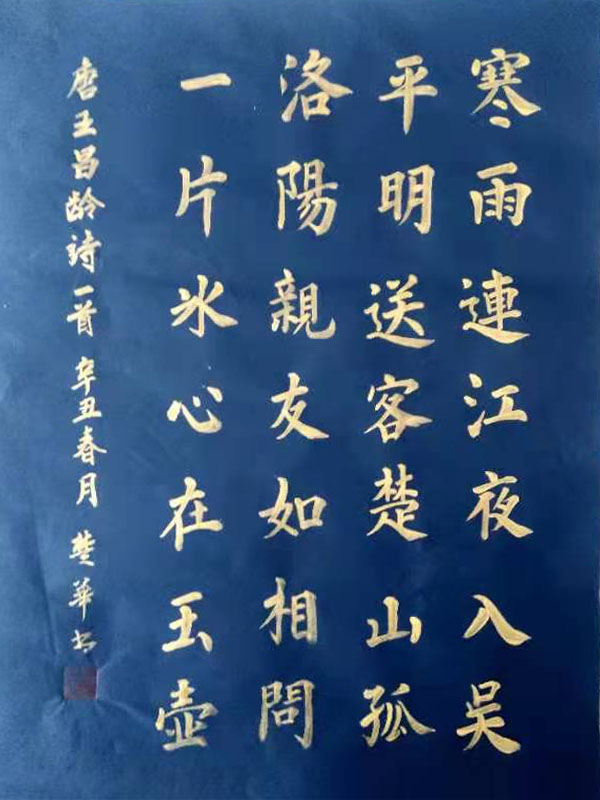 寒雨連江夜入吴
平明送客楚山孤
洛陽親友如相問
一片冰心在玉壺
唐王昌龄诗一首 辛丑春月 楚華书